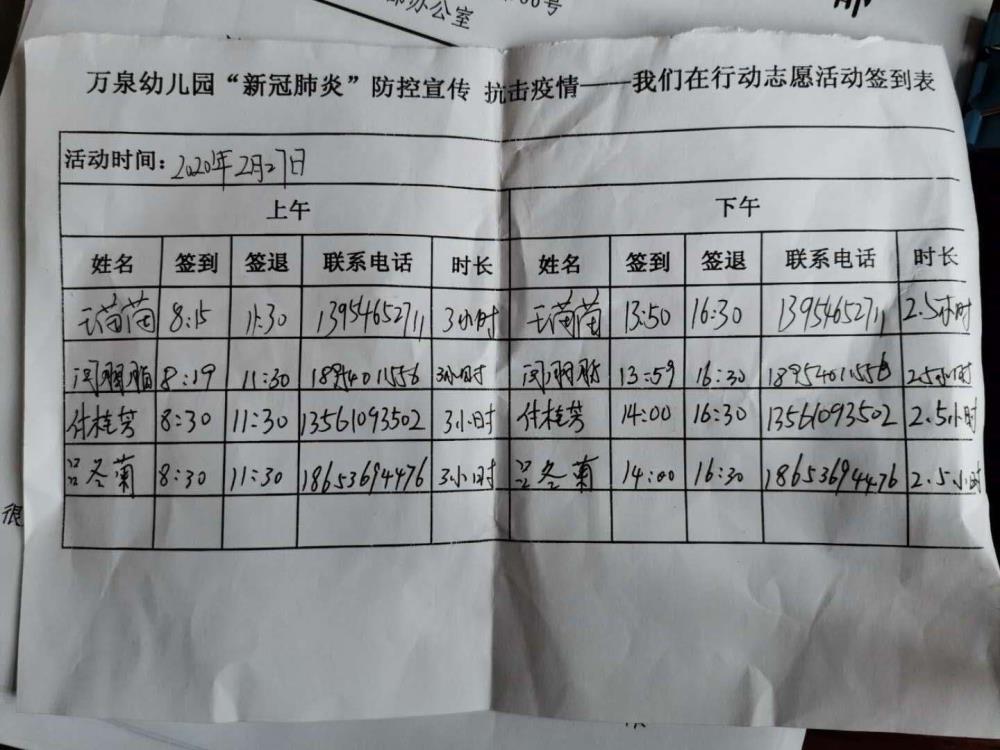 部办公室
号
万泉幼儿园“新冠肺炎”防控宣传 抗击疫情——我们在行动志愿活动签到表
活动时间：2020年2月27日
上午 下午
姓名 签到 签退 联系电话 时长 姓名 签到 签退 联系电话 时长
王茵茵 8:15 11:30 13954652711 3小时 王茵茵 13:50 16:30 13954652711 2.5小时
8:29 11:30 18954011556 3小时 13:59 16:30 18954011556 2.5小时
桂芳 8:30 11:30 13561093502 3小时 桂芳 14:00 16:30 13561093502 2.5小时
吕冬菊 8:30 11:30 18653694476 3小时 吕冬菊 14:00 16:30 18653694476 2.5小时
很